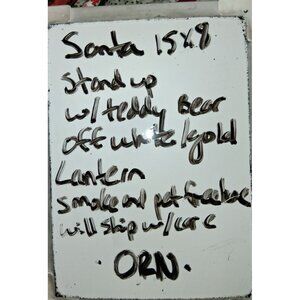 Santa 15x8
Stand up
w/teddy Bear
off white/gold
Lantern
smoke and pet free home
will ship w/care
. ORN.